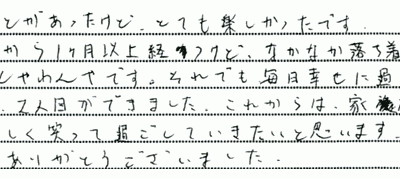 とがあったけど、とても楽しかったです。
から1ヶ月以上経ったけど、なかなか落ち着
しゃわんやです。それでも毎日幸せに過
、2人目ができました。これからは、家族
しく笑って過ごしていきたいと思います。
ありがとうございました。